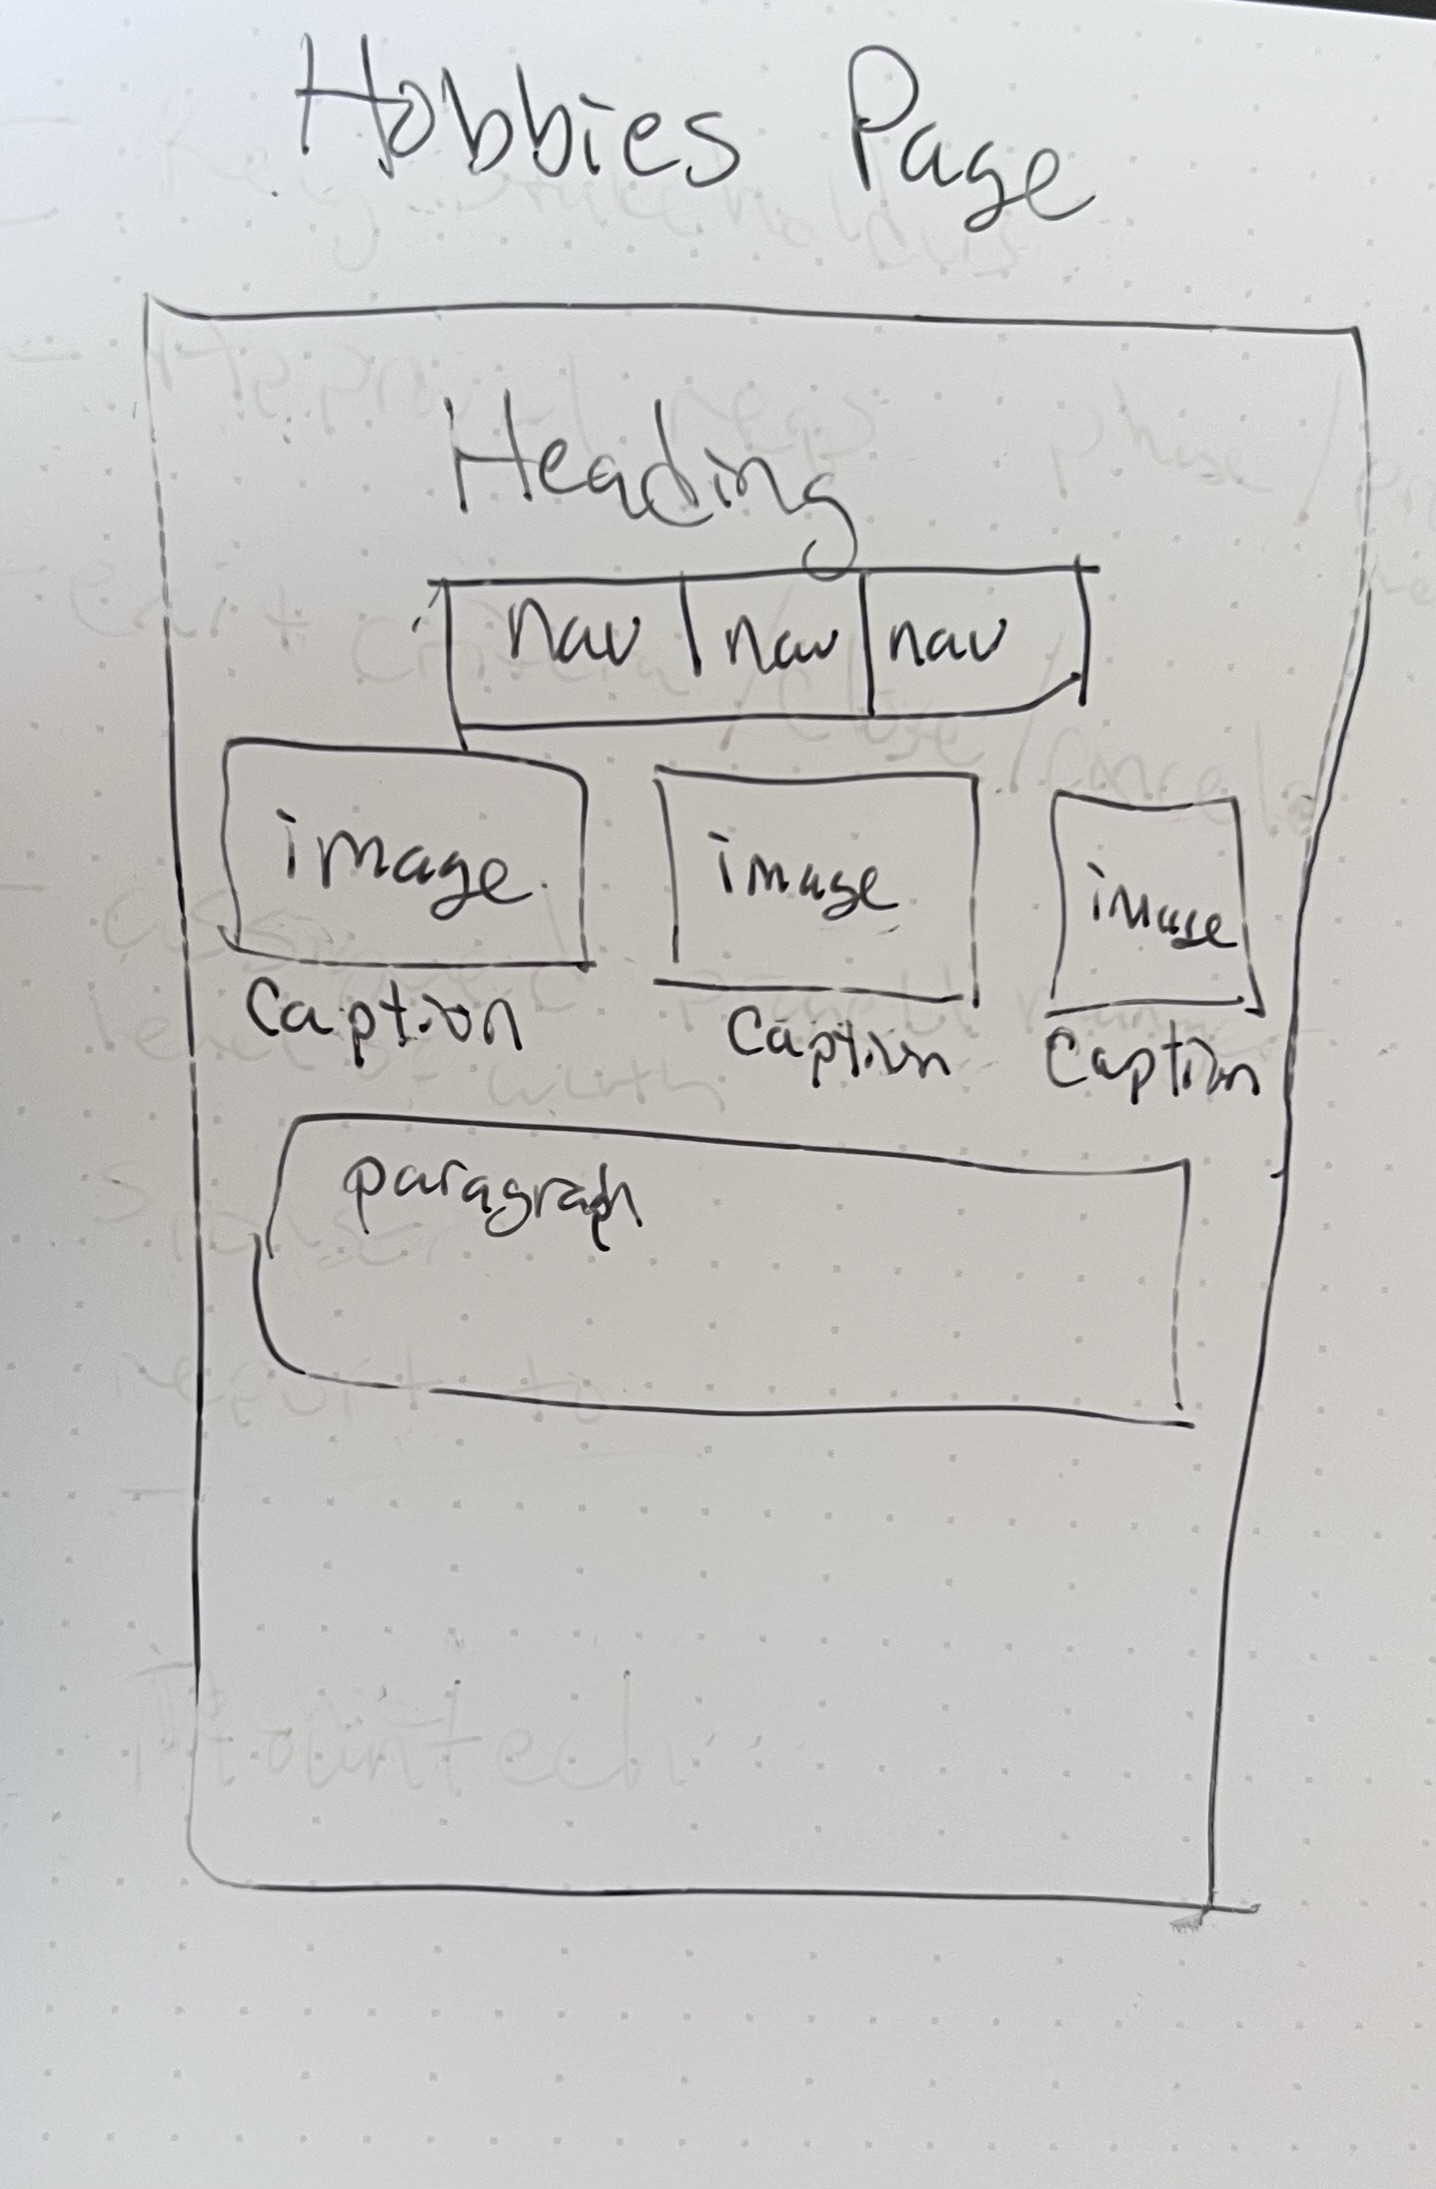 Hobbies Page
Heading
nav nav nav
image image image
Caption Caption Caption
paragraph